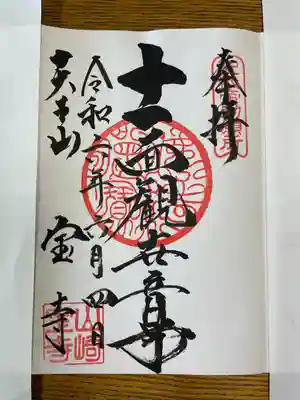 奉拝
十一面観世音
令和六年四月四日
天王山
宝寺
山崎
宝寺